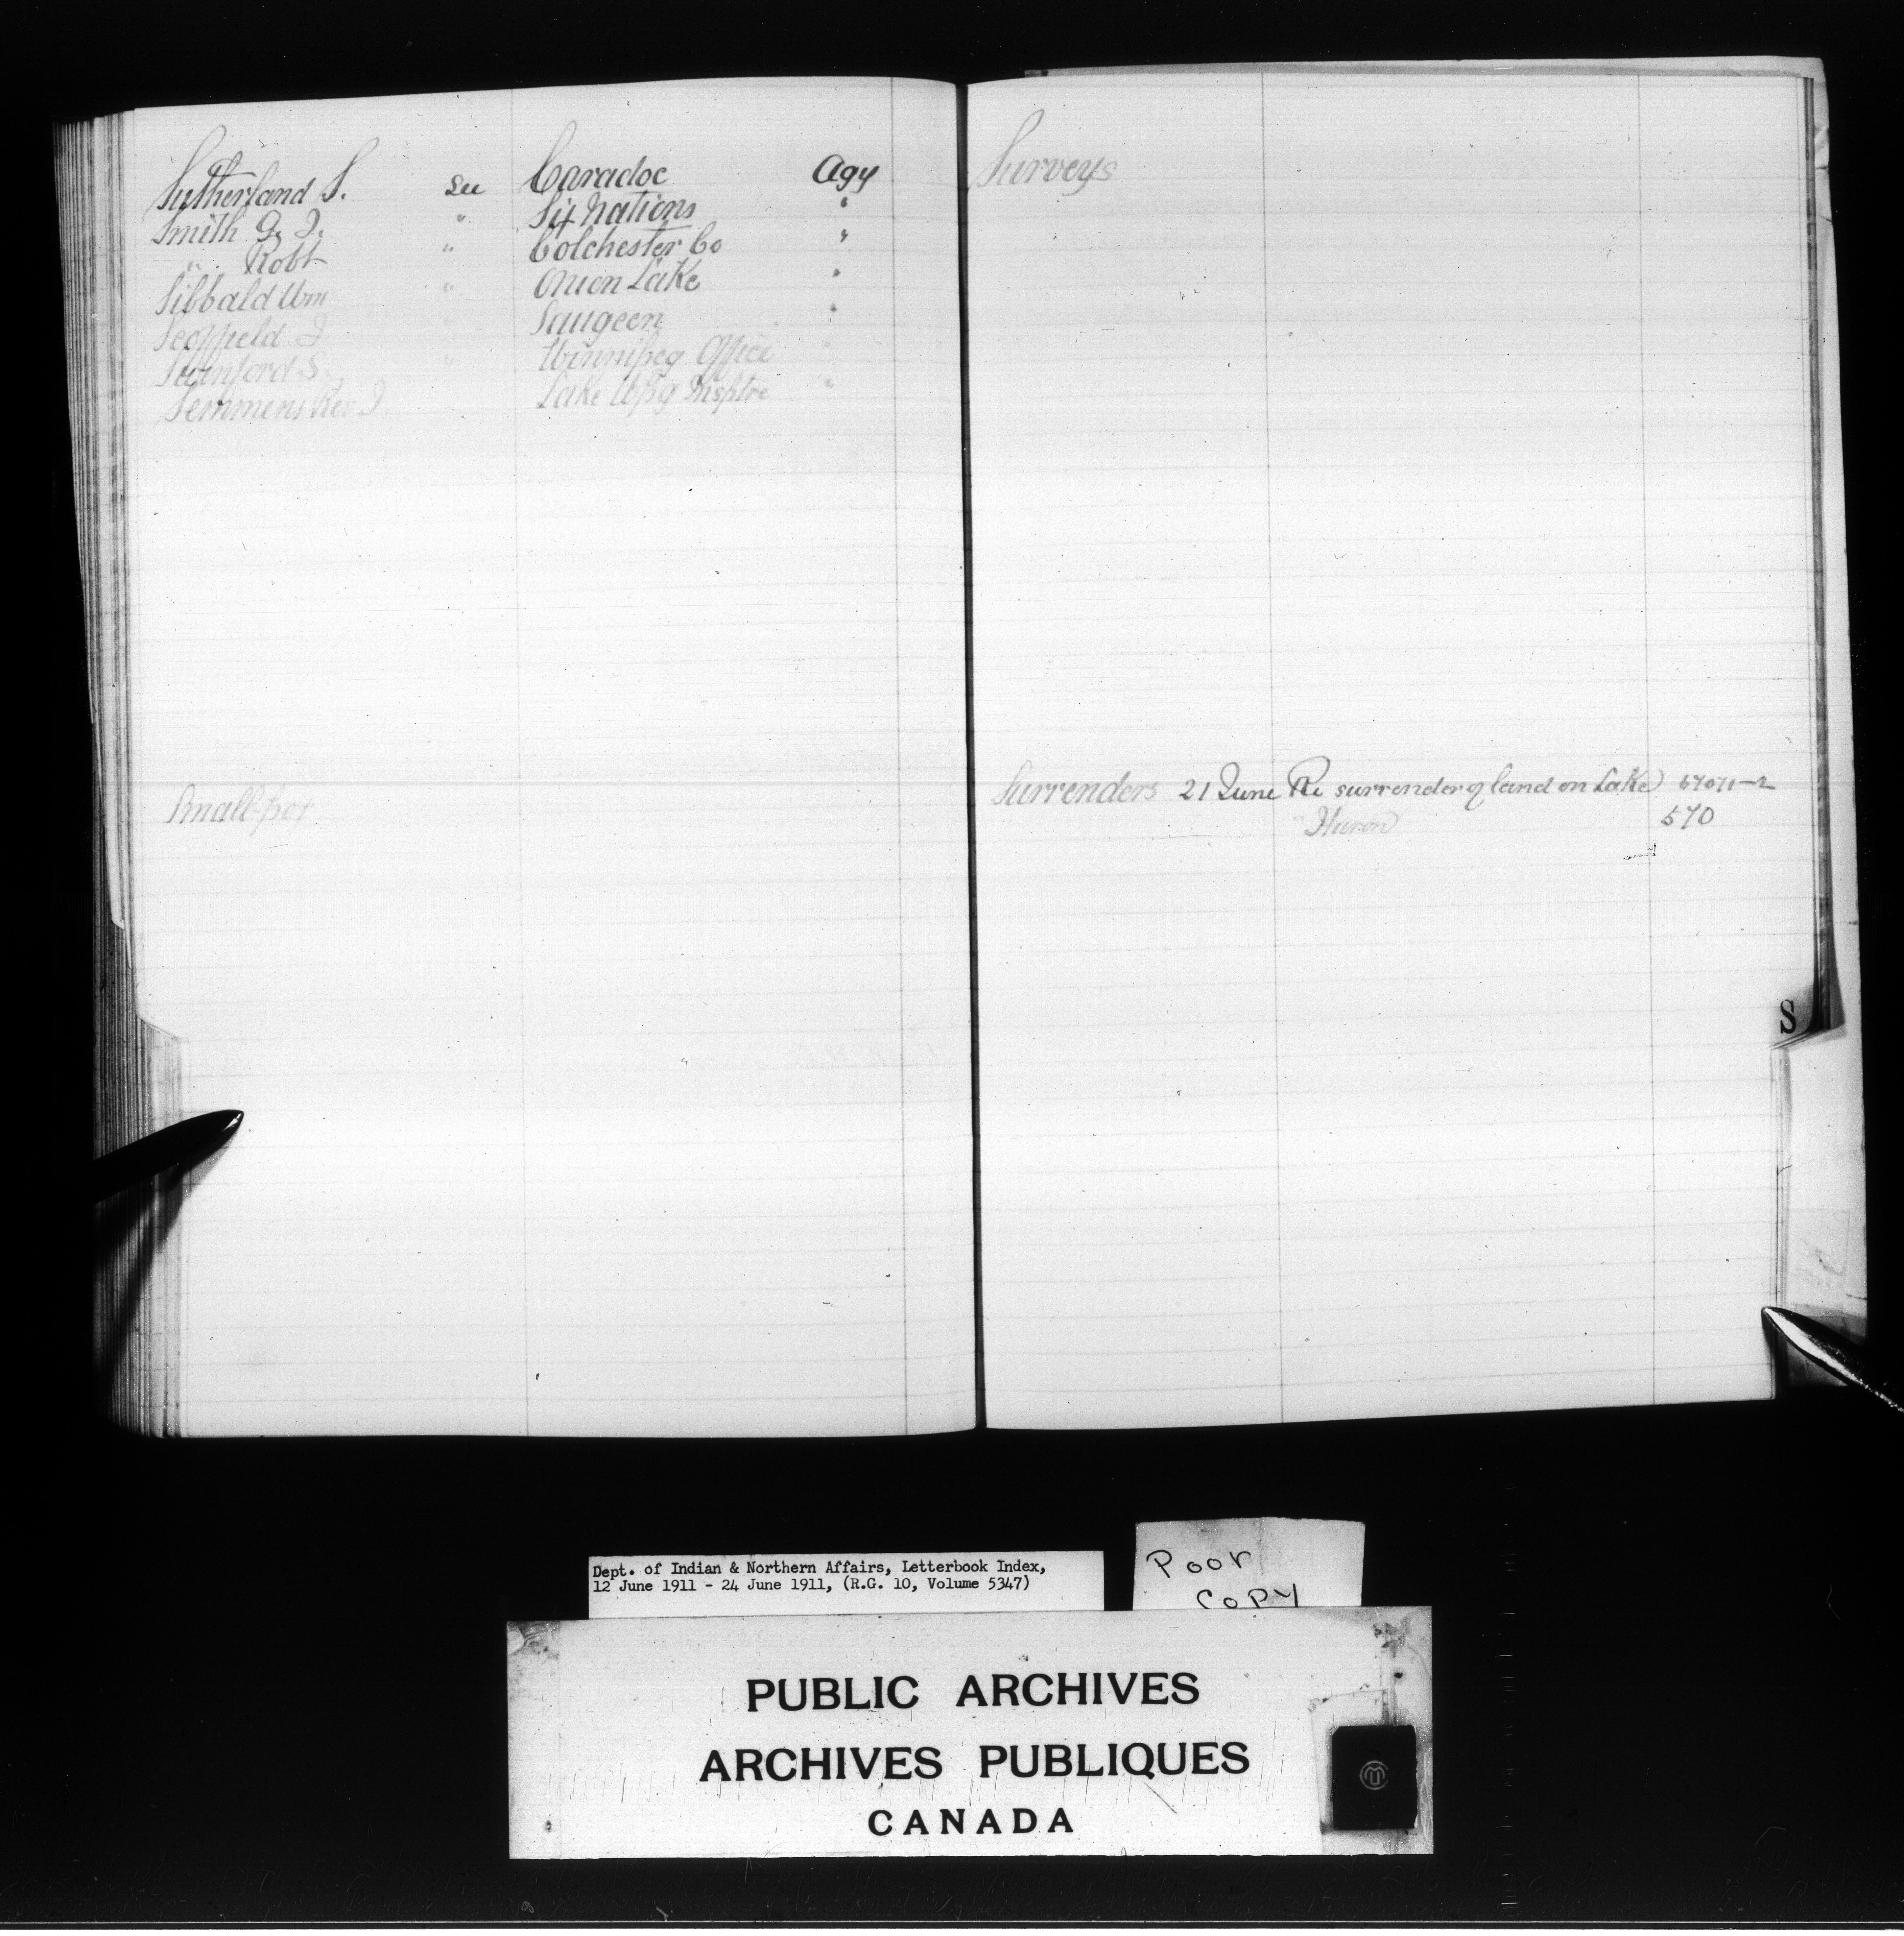 Sutherland S. See Caradoc Agy
Smith G. J. " Six Nations "
" Robt " Colchester Co "
Sibbald Wm " Onion Lake "
Scoffield J. " Saugeen "
Swinford S. " Winnipeg Office "
Semmens Rev. J. " Lake Wpg Insptre "
Small-pox
Surveys
Surrenders 21 June Re surrender of land on Lake 67071-2
" Huron 570
S
Dept. of Indian & Northern Affairs, Letterbook Index,
12 June 1911 - 24 June 1911, (R.G. 10, Volume 5347)
Poor
Copy
PUBLIC ARCHIVES
ARCHIVES PUBLIQUES
CANADA